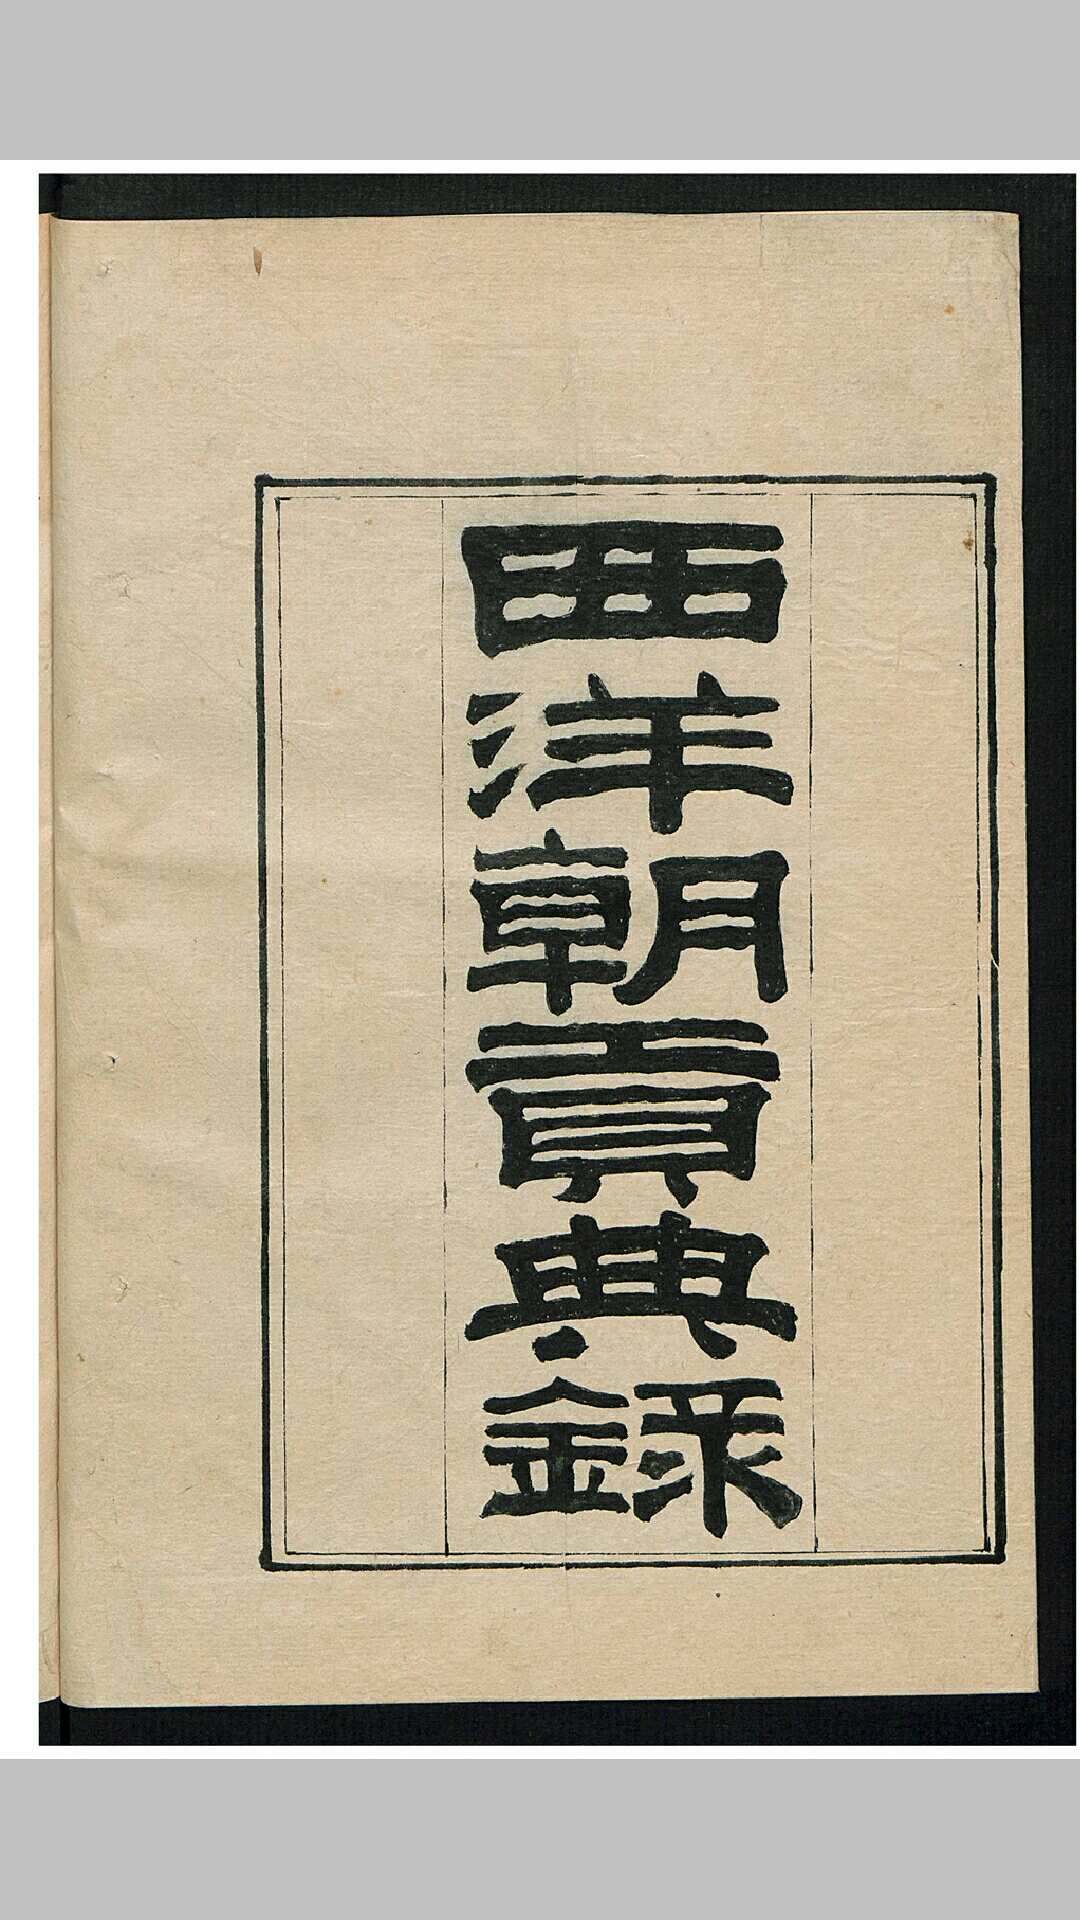 西洋朝貢典錄